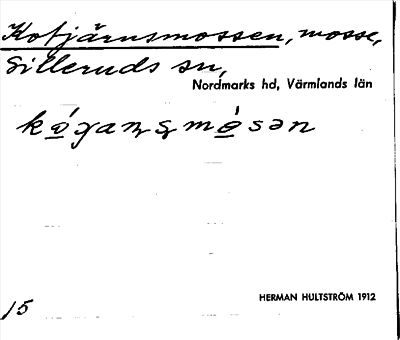 Kotjärnsmossen, mosse,
Silleruds sn,
Nordmarks hd, Värmlands län
HERMAN HULTSTRÖM 1912
15